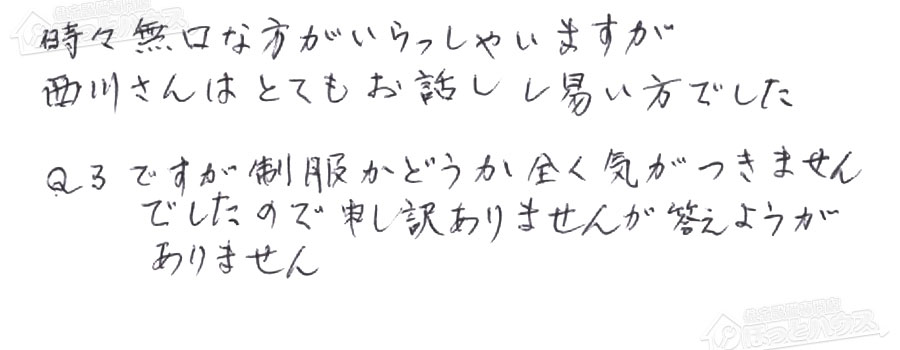 時々無口な方がいらっしゃいますが
西川さんはとてもお話しし易い方でした
Q3ですが制服かどうか全く気がつきません
でしたので申し訳ありませんが答えようが
ありません
ほっとハウス